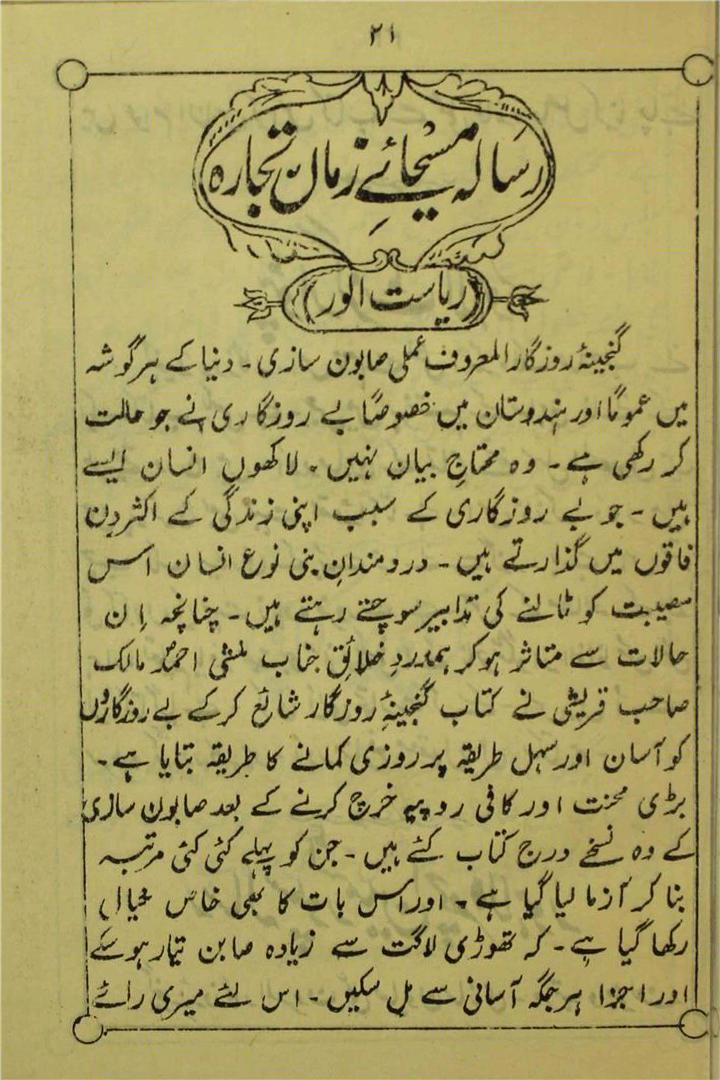 ۲۱
رسالہ مسیحائے زمان تجارہ
(ریاست الور)
گنجینۂ روزگار المعروف عملی صابون سازی ۔ دنیا کے ہر گوشہ
میں عموماً اور ہندوستان میں خصوصاً بے روزگاری نے جو حالت
کر رکھی ہے ۔ وہ محتاجِ بیان نہیں ۔ لاکھوں انسان ایسے
ہیں ۔ جو بے روزگاری کے سبب اپنی زندگی کے اکثر دن
فاقوں میں گذارتے ہیں ۔ دردمندانِ بنی نوع انسان اس
مصیبت کو ٹالنے کی تدابیر سوچتے رہتے ہیں ۔ چنانچہ اِن
حالات سے متاثر ہوکر ہمدردِ خلائق جناب منشی احمد مالک
صاحب قریشی نے کتاب گنجینۂ روزگار شائع کرکے بے روزگاروں
کو آسان اور سہل طریقہ پر روزی کمانے کا طریقہ بتایا ہے ۔
بڑی محنت اور کافی روپیہ خرچ کرنے کے بعد صابون سازی
کے وہ نسخے درج کتاب کئے ہیں ۔ جن کو پہلے کئی کئی مرتبہ
بنا کر آزما لیا گیا ہے ۔ اور اس بات کا بھی خاص خیال
رکھا گیا ہے ۔ کہ تھوڑی لاگت سے زیادہ صابن تیار ہوسکے
اور اجزا ہر جگہ آسانی سے مل سکیں ۔ اس لئے میری رائے